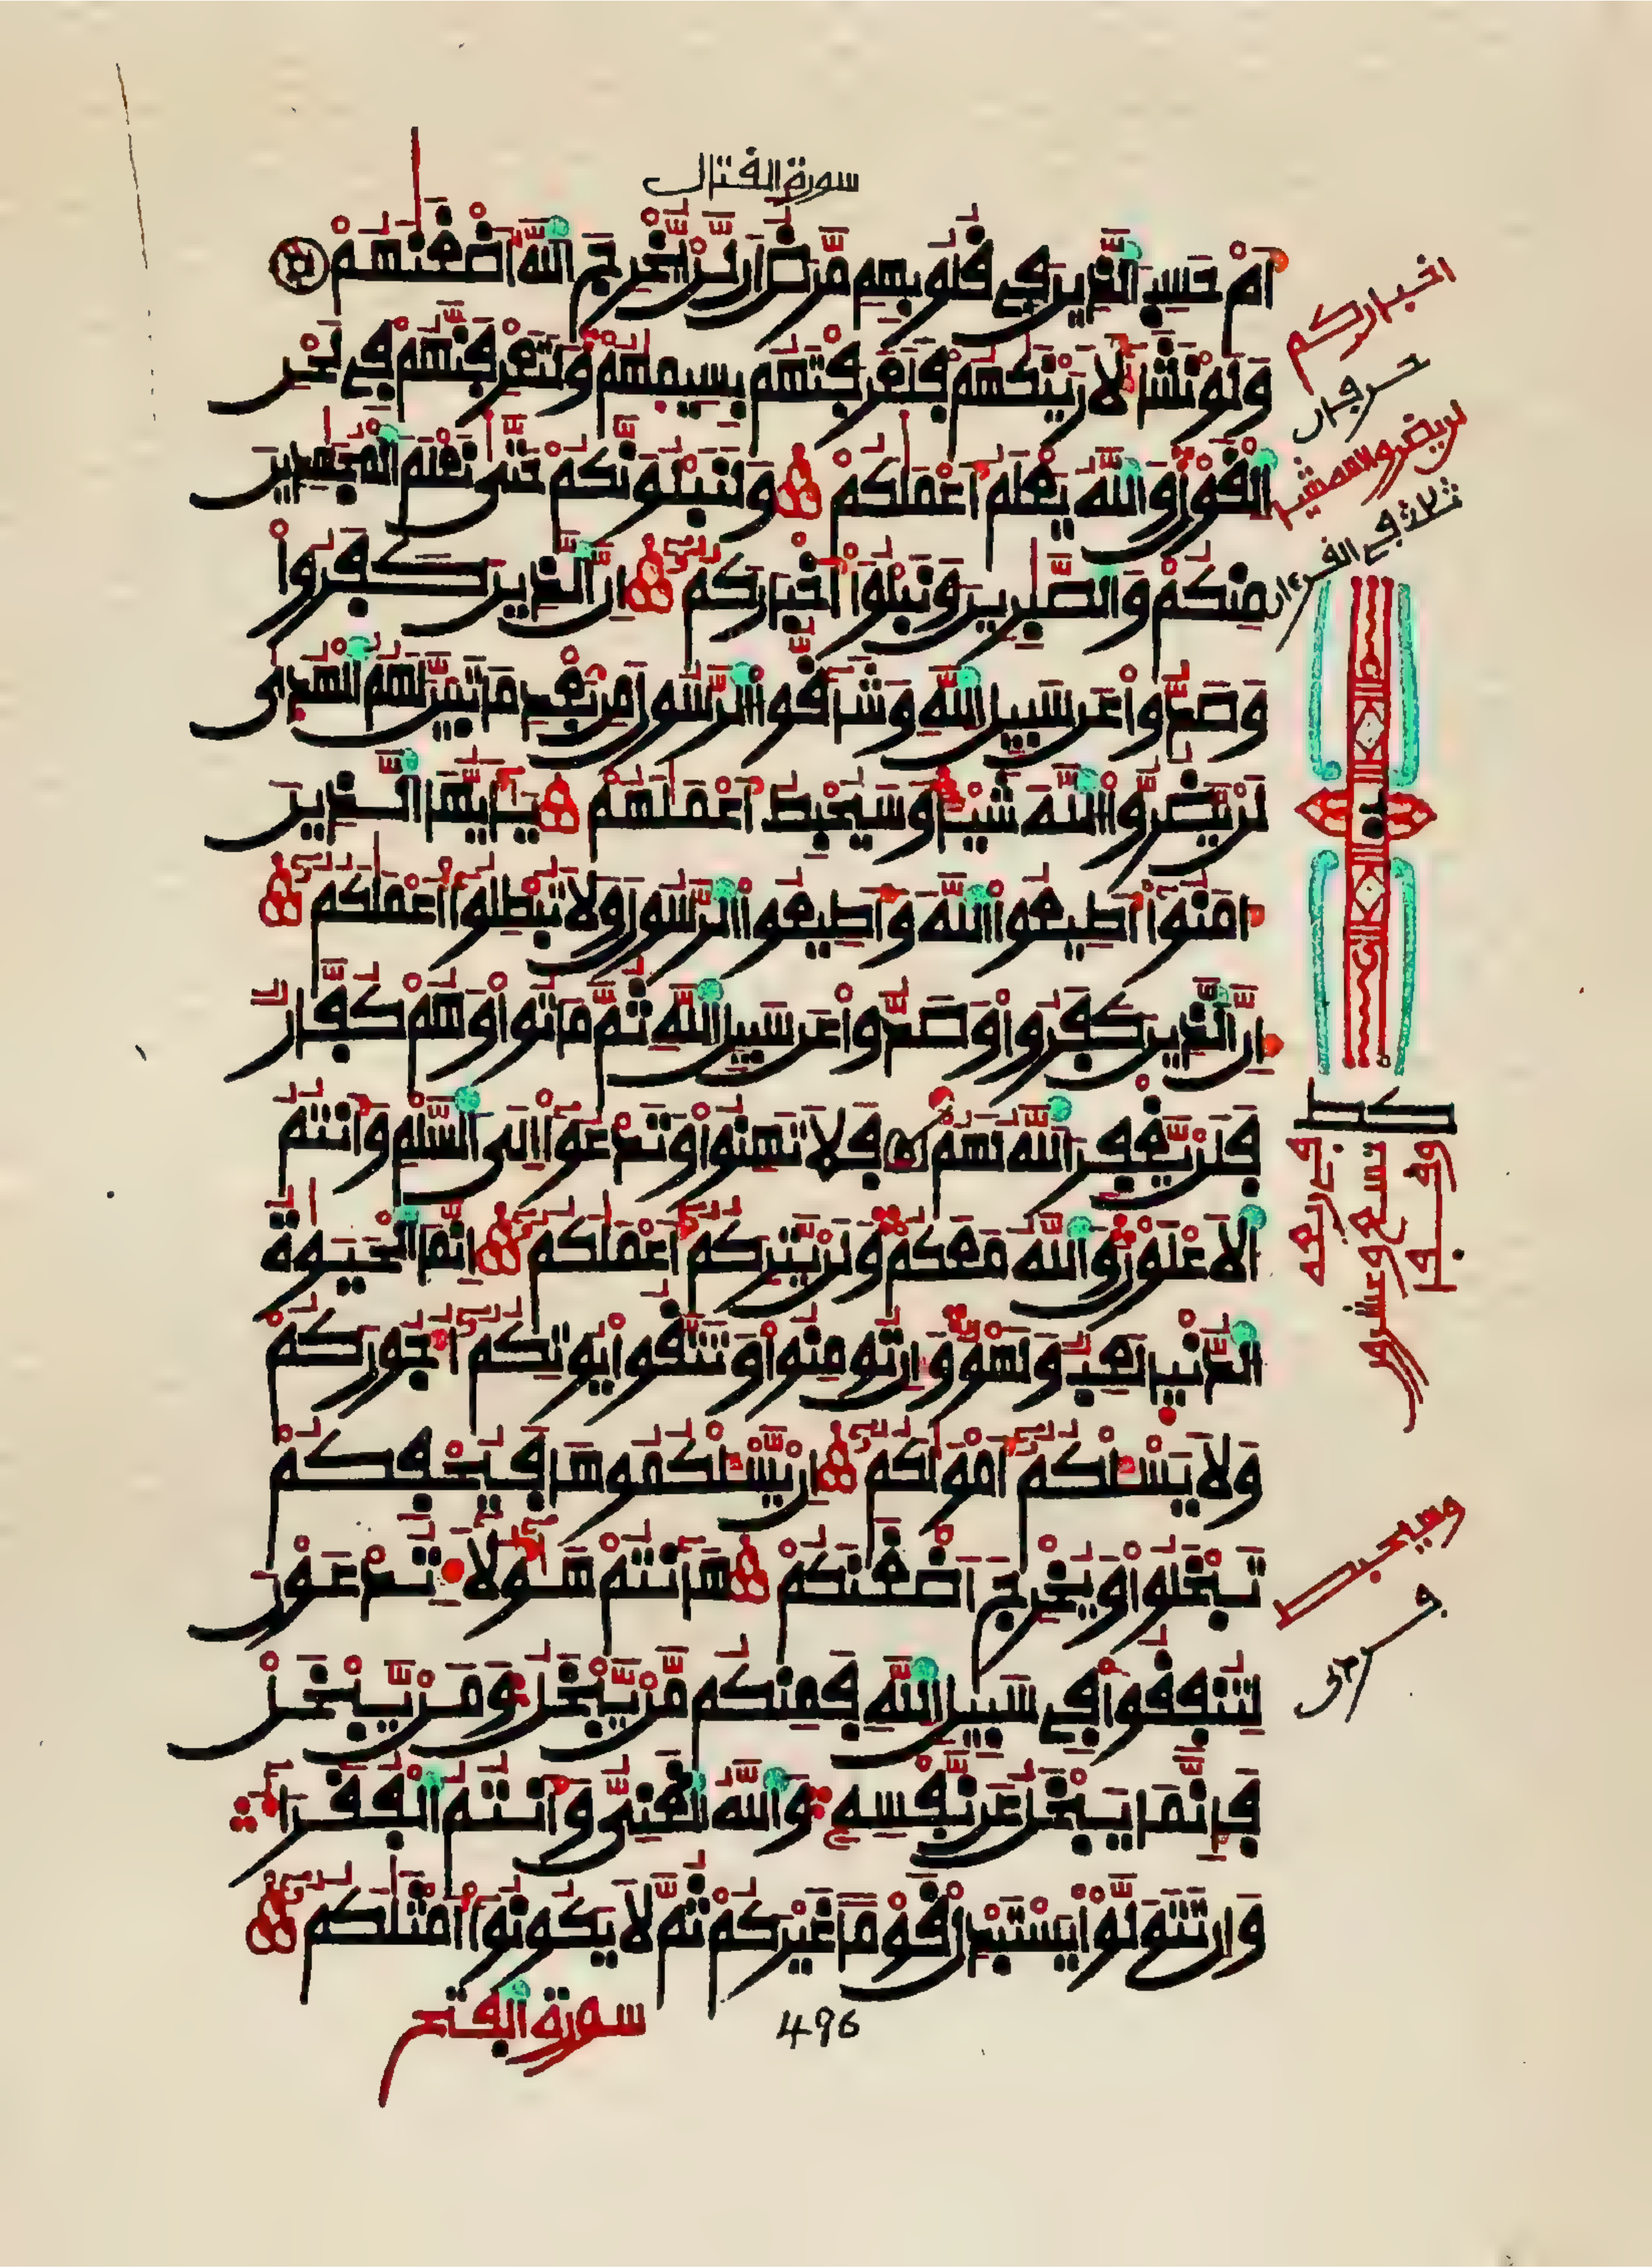 سورة القتال
أَمْ حَسِبَ ٱلَّذِينَ فِي قُلُوبِهِم مَّرَضٌ أَن لَّنْ يُّخْرِجَ ٱللَّهُ أَضْغَٰنَهُمْ
وَلَوْ نَشَآءُ لَأَرَيْنَٰكَهُمْ فَلَعَرَفْتَهُم بِسِيمَٰهُمْ وَلَتَعْرِفَنَّهُمْ فِي لَحْنِ
ٱلْقَوْلِ وَٱللَّهُ يَعْلَمُ أَعْمَٰلَكُمْ وَلَنَبْلُوَنَّكُمْ حَتَّىٰ نَعْلَمَ ٱلْمُجَٰهِدِينَ
مِنكُمْ وَٱلصَّٰبِرِينَ وَنَبْلُوَا۟ أَخْبَارَكُمْ إِنَّ ٱلَّذِينَ كَفَرُوا۟
وَصَدُّوا۟ عَن سَبِيلِ ٱللَّهِ وَشَآقُّوا۟ ٱلرَّسُولَ مِنۢ بَعْدِ مَا تَبَيَّنَ لَهُمُ ٱلْهُدَىٰ
لَنْ يَّضُرُّوا۟ ٱللَّهَ شَيْـًٔا وَسَيُحْبِطُ أَعْمَٰلَهُمْ يَٰٓأَيُّهَا ٱلَّذِينَ
ءَامَنُوٓا۟ أَطِيعُوا۟ ٱللَّهَ وَأَطِيعُوا۟ ٱلرَّسُولَ وَلَا تُبْطِلُوٓا۟ أَعْمَٰلَكُمْ
إِنَّ ٱلَّذِينَ كَفَرُوا۟ وَصَدُّوا۟ عَن سَبِيلِ ٱللَّهِ ثُمَّ مَاتُوا۟ وَهُمْ كُفَّارٌ
فَلَنْ يَّغْفِرَ ٱللَّهُ لَهُمْ فَلَا تَهِنُوا۟ وَتَدْعُوٓا۟ إِلَى ٱلسَّلْمِ وَأَنتُمُ
ٱلْأَعْلَوْنَ وَٱللَّهُ مَعَكُمْ وَلَنْ يَّتِرَكُمْ أَعْمَٰلَكُمْ إِنَّمَا ٱلْحَيَوٰةُ
ٱلدُّنْيَا لَعِبٌ وَلَهْوٌ وَإِن تُومِنُوا۟ وَتَتَّقُوا۟ يُوتِكُمْ أُجُورَكُمْ
وَلَا يَسْـَٔلْكُمْ أَمْوَٰلَكُمْ إِنْ يَّسْـَٔلْكُمُوهَا فَيُحْفِكُمْ
تَبْخَلُوا۟ وَيُخْرِجْ أَضْغَٰنَكُمْ هَآنتُمْ هَٰٓؤُلَآءِ تُدْعَوْنَ
لِتُنفِقُوا۟ فِي سَبِيلِ ٱللَّهِ فَمِنكُم مَّنْ يَّبْخَلُ وَمَنْ يَّبْخَلْ
فَإِنَّمَا يَبْخَلُ عَن نَّفْسِهِ وَٱللَّهُ ٱلْغَنِيُّ وَأَنتُمُ ٱلْفُقَرَآءُ
وَإِن تَتَوَلَّوْا۟ يَسْتَبْدِلْ قَوْمًا غَيْرَكُمْ ثُمَّ لَا يَكُونُوٓا۟ أَمْثَٰلَكُم
سورة الفتح
496
اخباركم
حرفان
لن يضروا الله شيـا
ثلاث في القرءان
حزب
كط
وقف
تسع وعشرون
في ربعه
وسيحبط